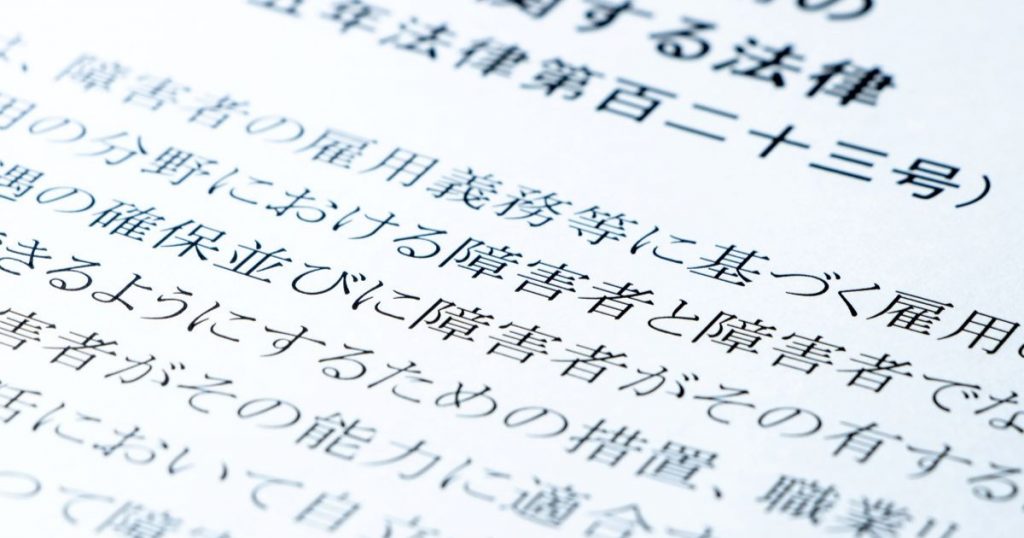 の
関する法律
五年法律第百二十三号）
、障害者の雇用義務等に基づく雇用の
用の分野における障害者と障害者でな
遇の確保並びに障害者がその有する
きるようにするための措置、職業
害者がその能力に適合す
活において自立
って障害